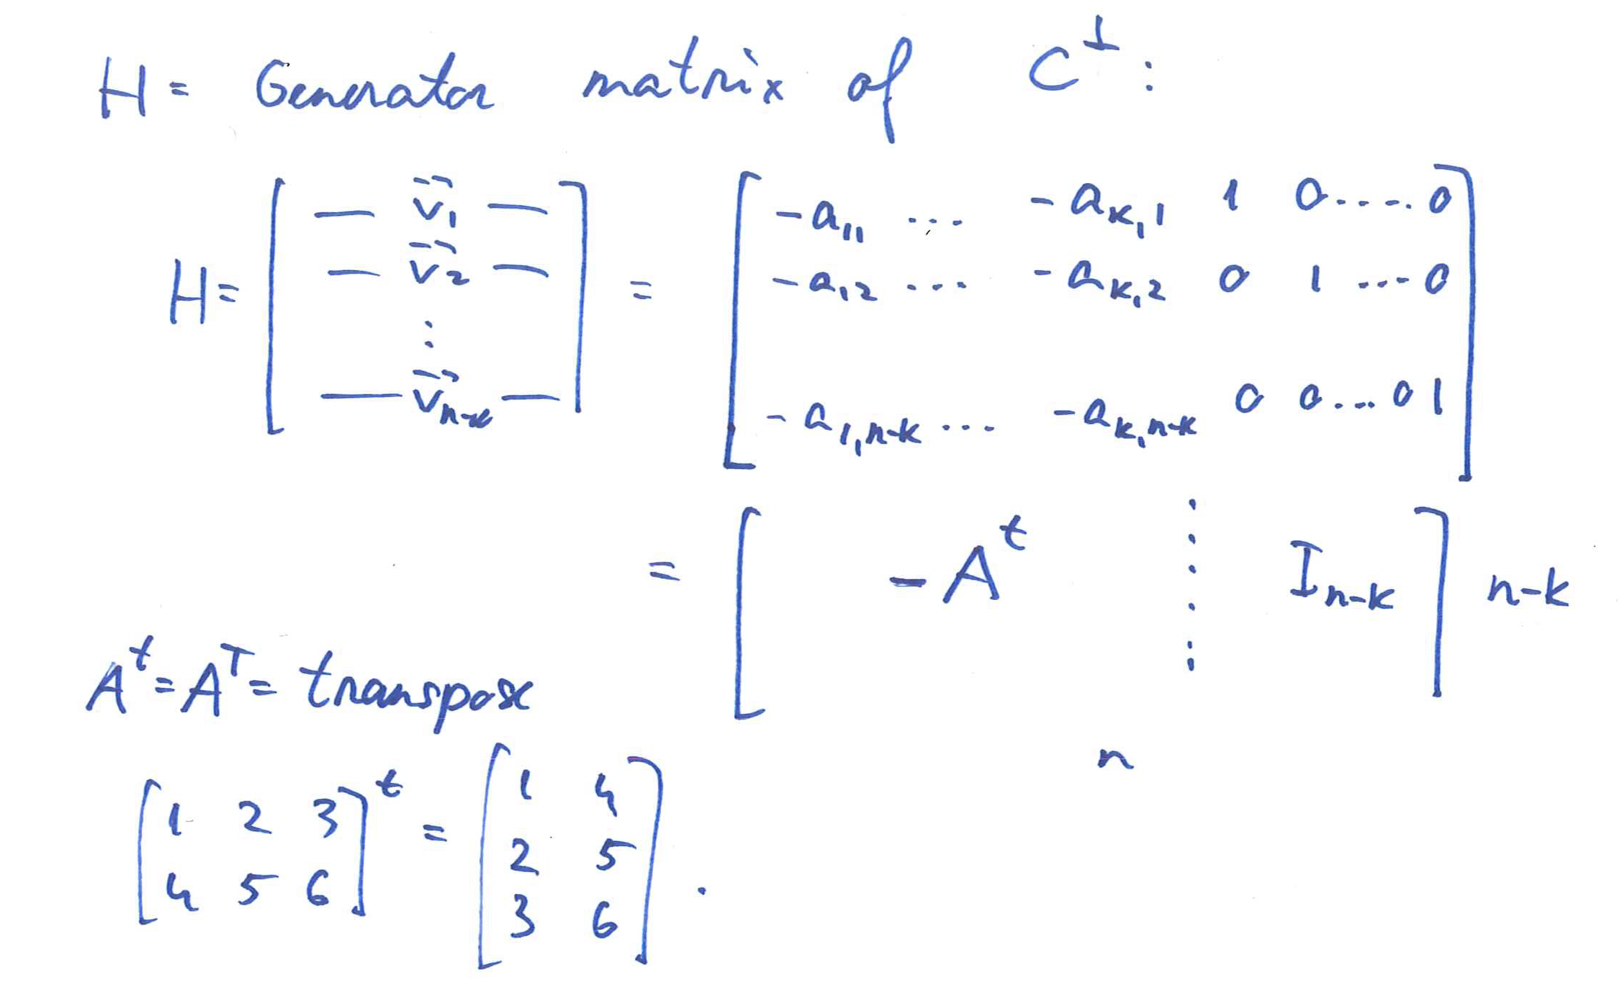 H = Generator matrix of C⊥ :
H = [ — v⃗₁ — = [ -a₁₁ ... -a_{k,1} 1 0 ..... 0
— v⃗₂ — -a₁₂ ... -a_{k,2} 0 1 ... 0
⋮
— v⃗_{n-k} — ] -a_{1,n-k} ... -a_{k,n-k} 0 0 ... 0 1 ]
= [ -Aᵗ ⋮ I_{n-k} ] n-k
n
Aᵗ = Aᵀ = transpose
[ 1 2 3 ]ᵗ = [ 1 4
4 5 6 2 5
3 6 ] .